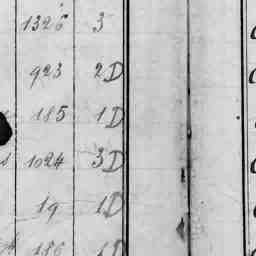 1326 3
923 2D
185 1D
1024 3D
19 1D
186 1D